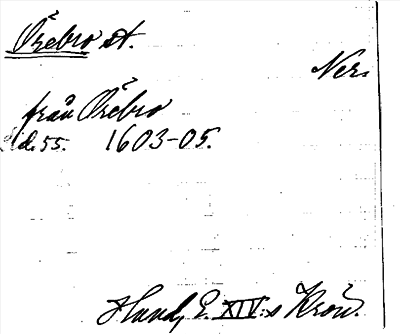 Örebro st.
Ner.
från Örebro
d. 55. 1603-05.
Handl. E. XIV:s Krön.